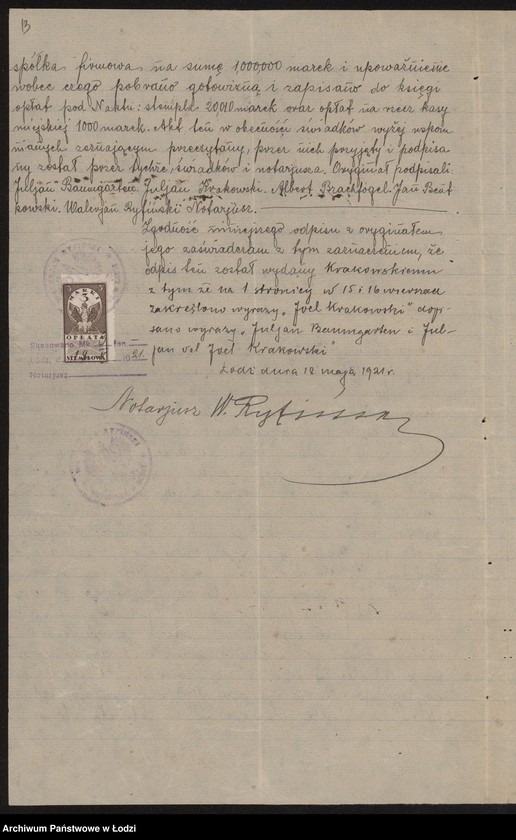 13
spółka firmowa na sumę 1,000,000 marek i upoważnienie
wobec czego pobrano gotowizną i zapisano do księgi
opłat pod N aktu: stempla 20,010 marek oraz opłat na rzecz kasy
miejskiej 1000 marek. Akt ten w obecności świadków wyżej wspom
nianych zeznającym przeczytany, przez nich przyjęty i podpisa
ny został przez tychże, świadków i notarjusza. Oryginał podpisali:
Juljan Baumgarten. Juljan Krakowski. Albert Brachfogel. Jan Beut
kowski. Walerjan Ryfiński Notarjusz.
Zgodność niniejszego odpisu z oryginałem
jego zaświadczam z tym zaznaczeniem, że
odpis ten został wydany Krakowskiemu
z tym że na 1 stronicy w 15 i 16 wierszach
zakreślono wyrazy „Joel Krakowski" dopi-
sano wyrazy „Juljan Baumgarten i Jul-
jan vel Joel Krakowski"
Łódź dnia 12 maja 1921 r.
MAREK
5
OPŁATA
STEMPLOWA
Skasowano Mk.
Łódź, 1921
Notarjusz
Notarjusz W. Ryfiński
Archiwum Państwowe w Łodzi